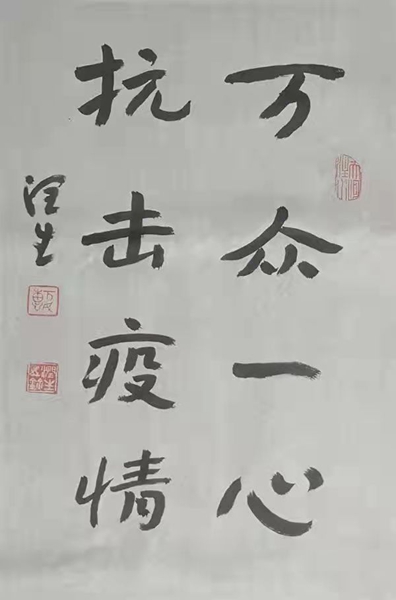 万众一心
抗击疫情